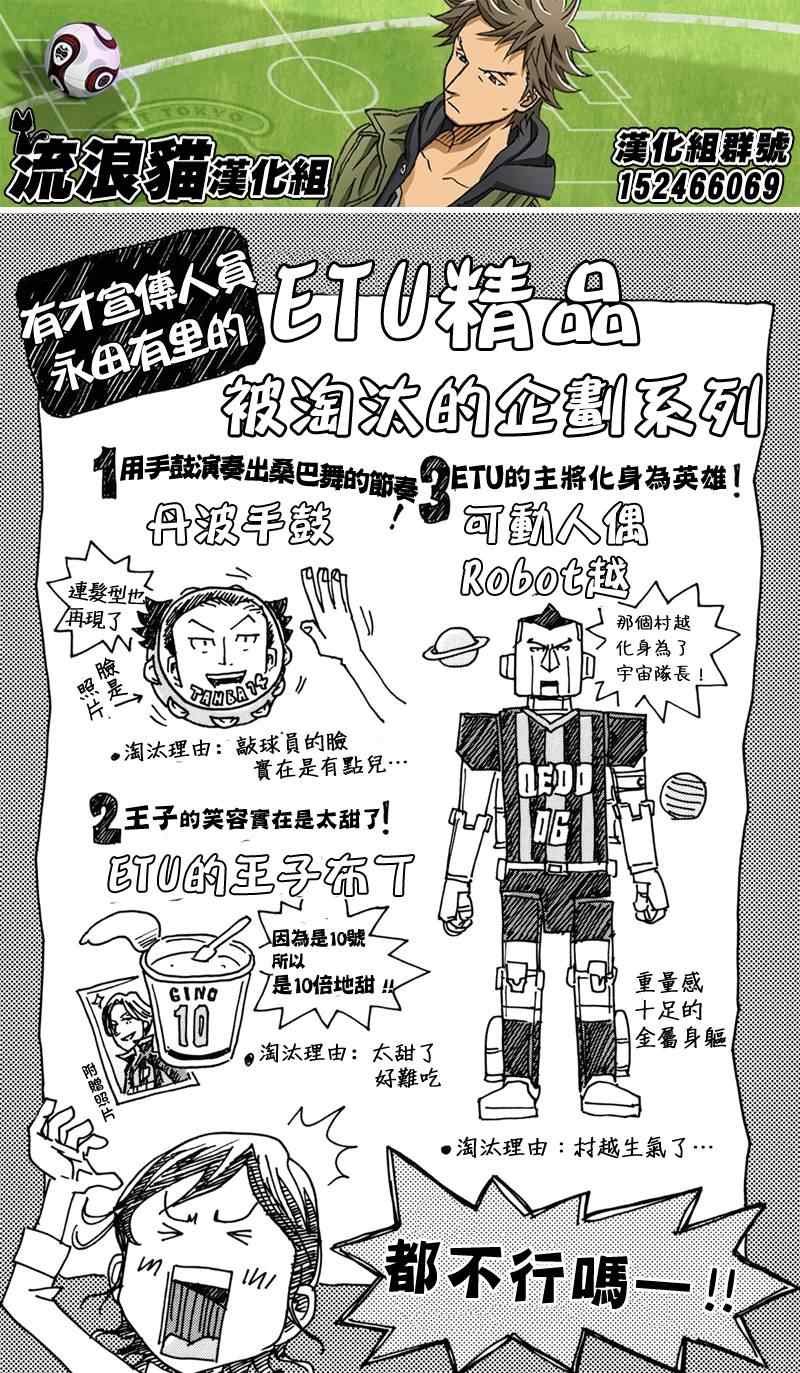 流浪貓漢化組
漢化組群號
152466069
有才宣傳人員
永田有里的
ETU精品
被淘汰的企劃系列
1用手鼓演奏出桑巴舞的節奏!
丹波手鼓
連髮型也
再現了
臉是
照片
TAMBA14
•淘汰理由：敲球員的臉
實在是有點兒…
2王子的笑容實在是太甜了!
ETU的王子布丁
因為是10號
所以
是10倍地甜!!
GINO
10
附贈照片
•淘汰理由：太甜了
好難吃
3ETU的主將化身為英雄!
可動人偶
Robot越
那個村越
化身為了
宇宙隊長!
OEDO
06
重量感
十足的
金屬身軀
•淘汰理由：村越生氣了…
都不行嗎—!!